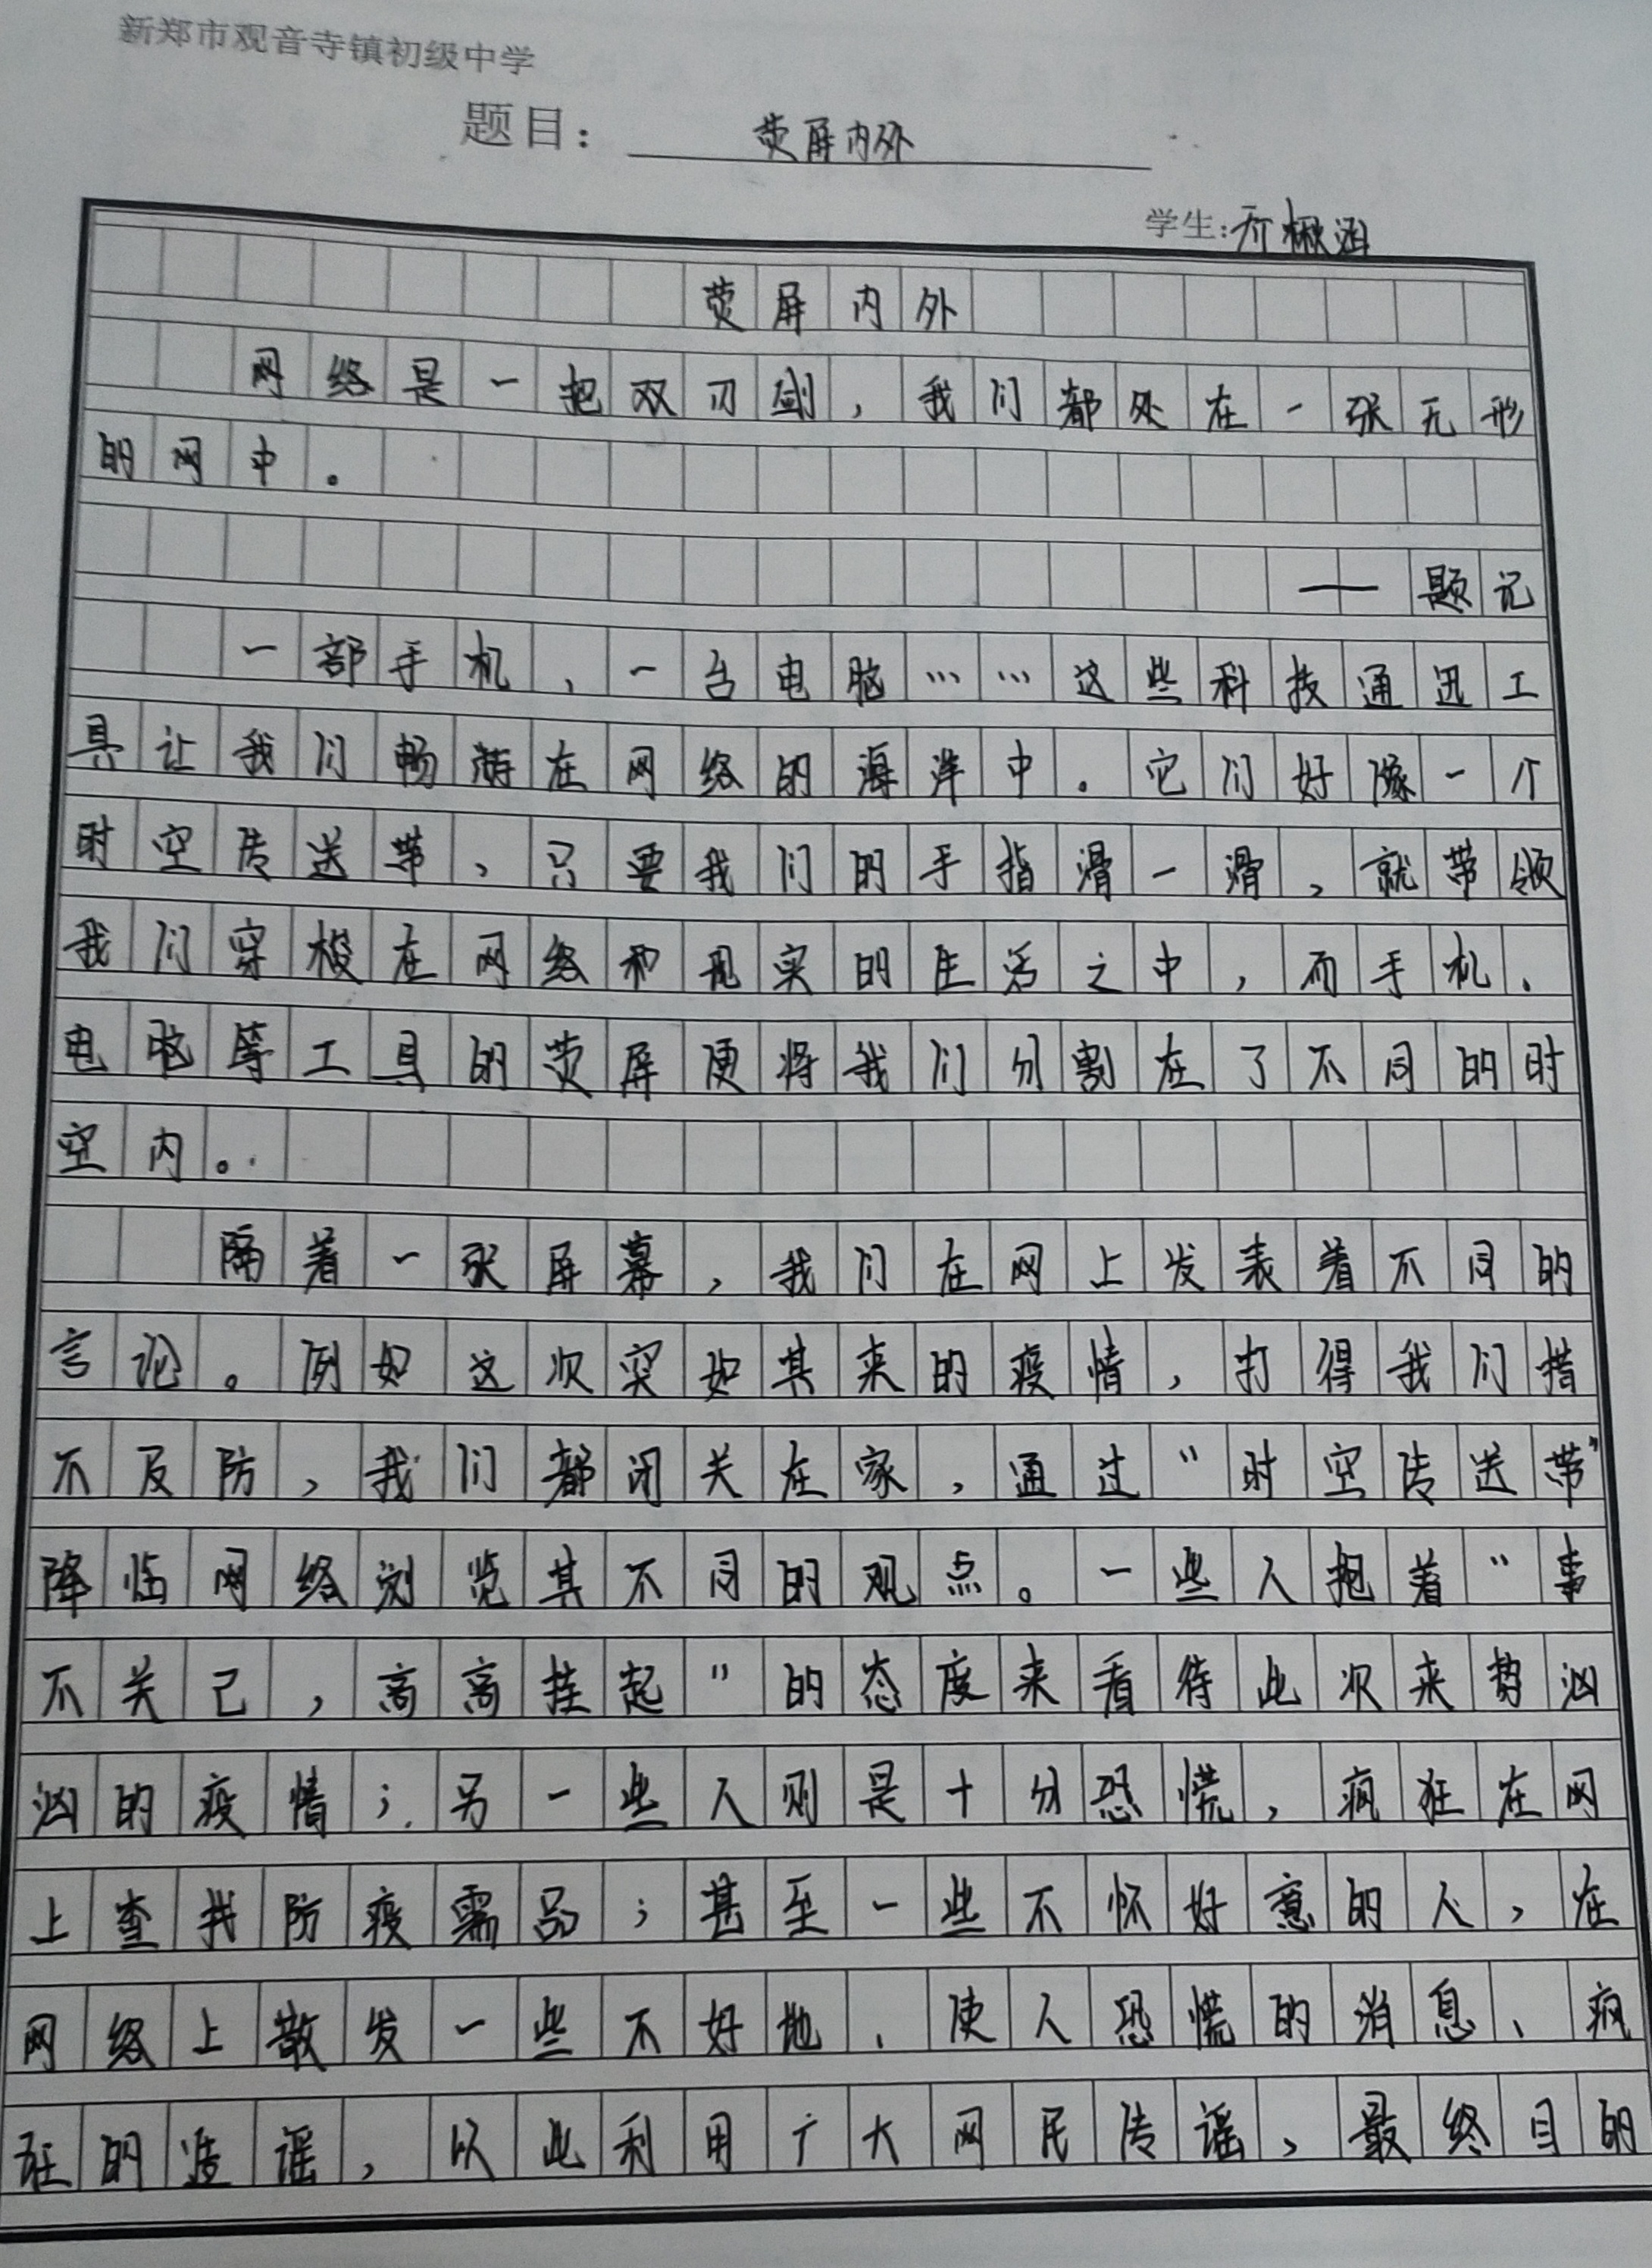 新郑市观音寺镇初级中学
题目：荧屏内外
学生：亓楸涵
荧屏内外
网络是一把双刃剑，我们都处在一张无形
的网中。
——题记
一部手机、一台电脑……这些科技通迅工
具让我们畅游在网络的海洋中。它们好像一个
时空传送带，只要我们的手指滑一滑，就带领
我们穿梭在网络和现实的生活之中，而手机、
电脑等工具的荧屏便将我们分割在了不同的时
空内。
隔着一张屏幕，我们在网上发表着不同的
言论。例如这次突如其来的疫情，打得我们措
不及防，我们都闭关在家，通过“时空传送带”
降临网络浏览其不同的观点。一些人抱着“事
不关己，高高挂起”的态度来看待此次来势汹
汹的疫情；另一些人则是十分恐慌，疯狂在网
上查找防疫需品；甚至一些不怀好意的人，在
网络上散发一些不好地、使人恐慌的消息、疯
狂的造谣，以此利用广大网民传谣，最终目的